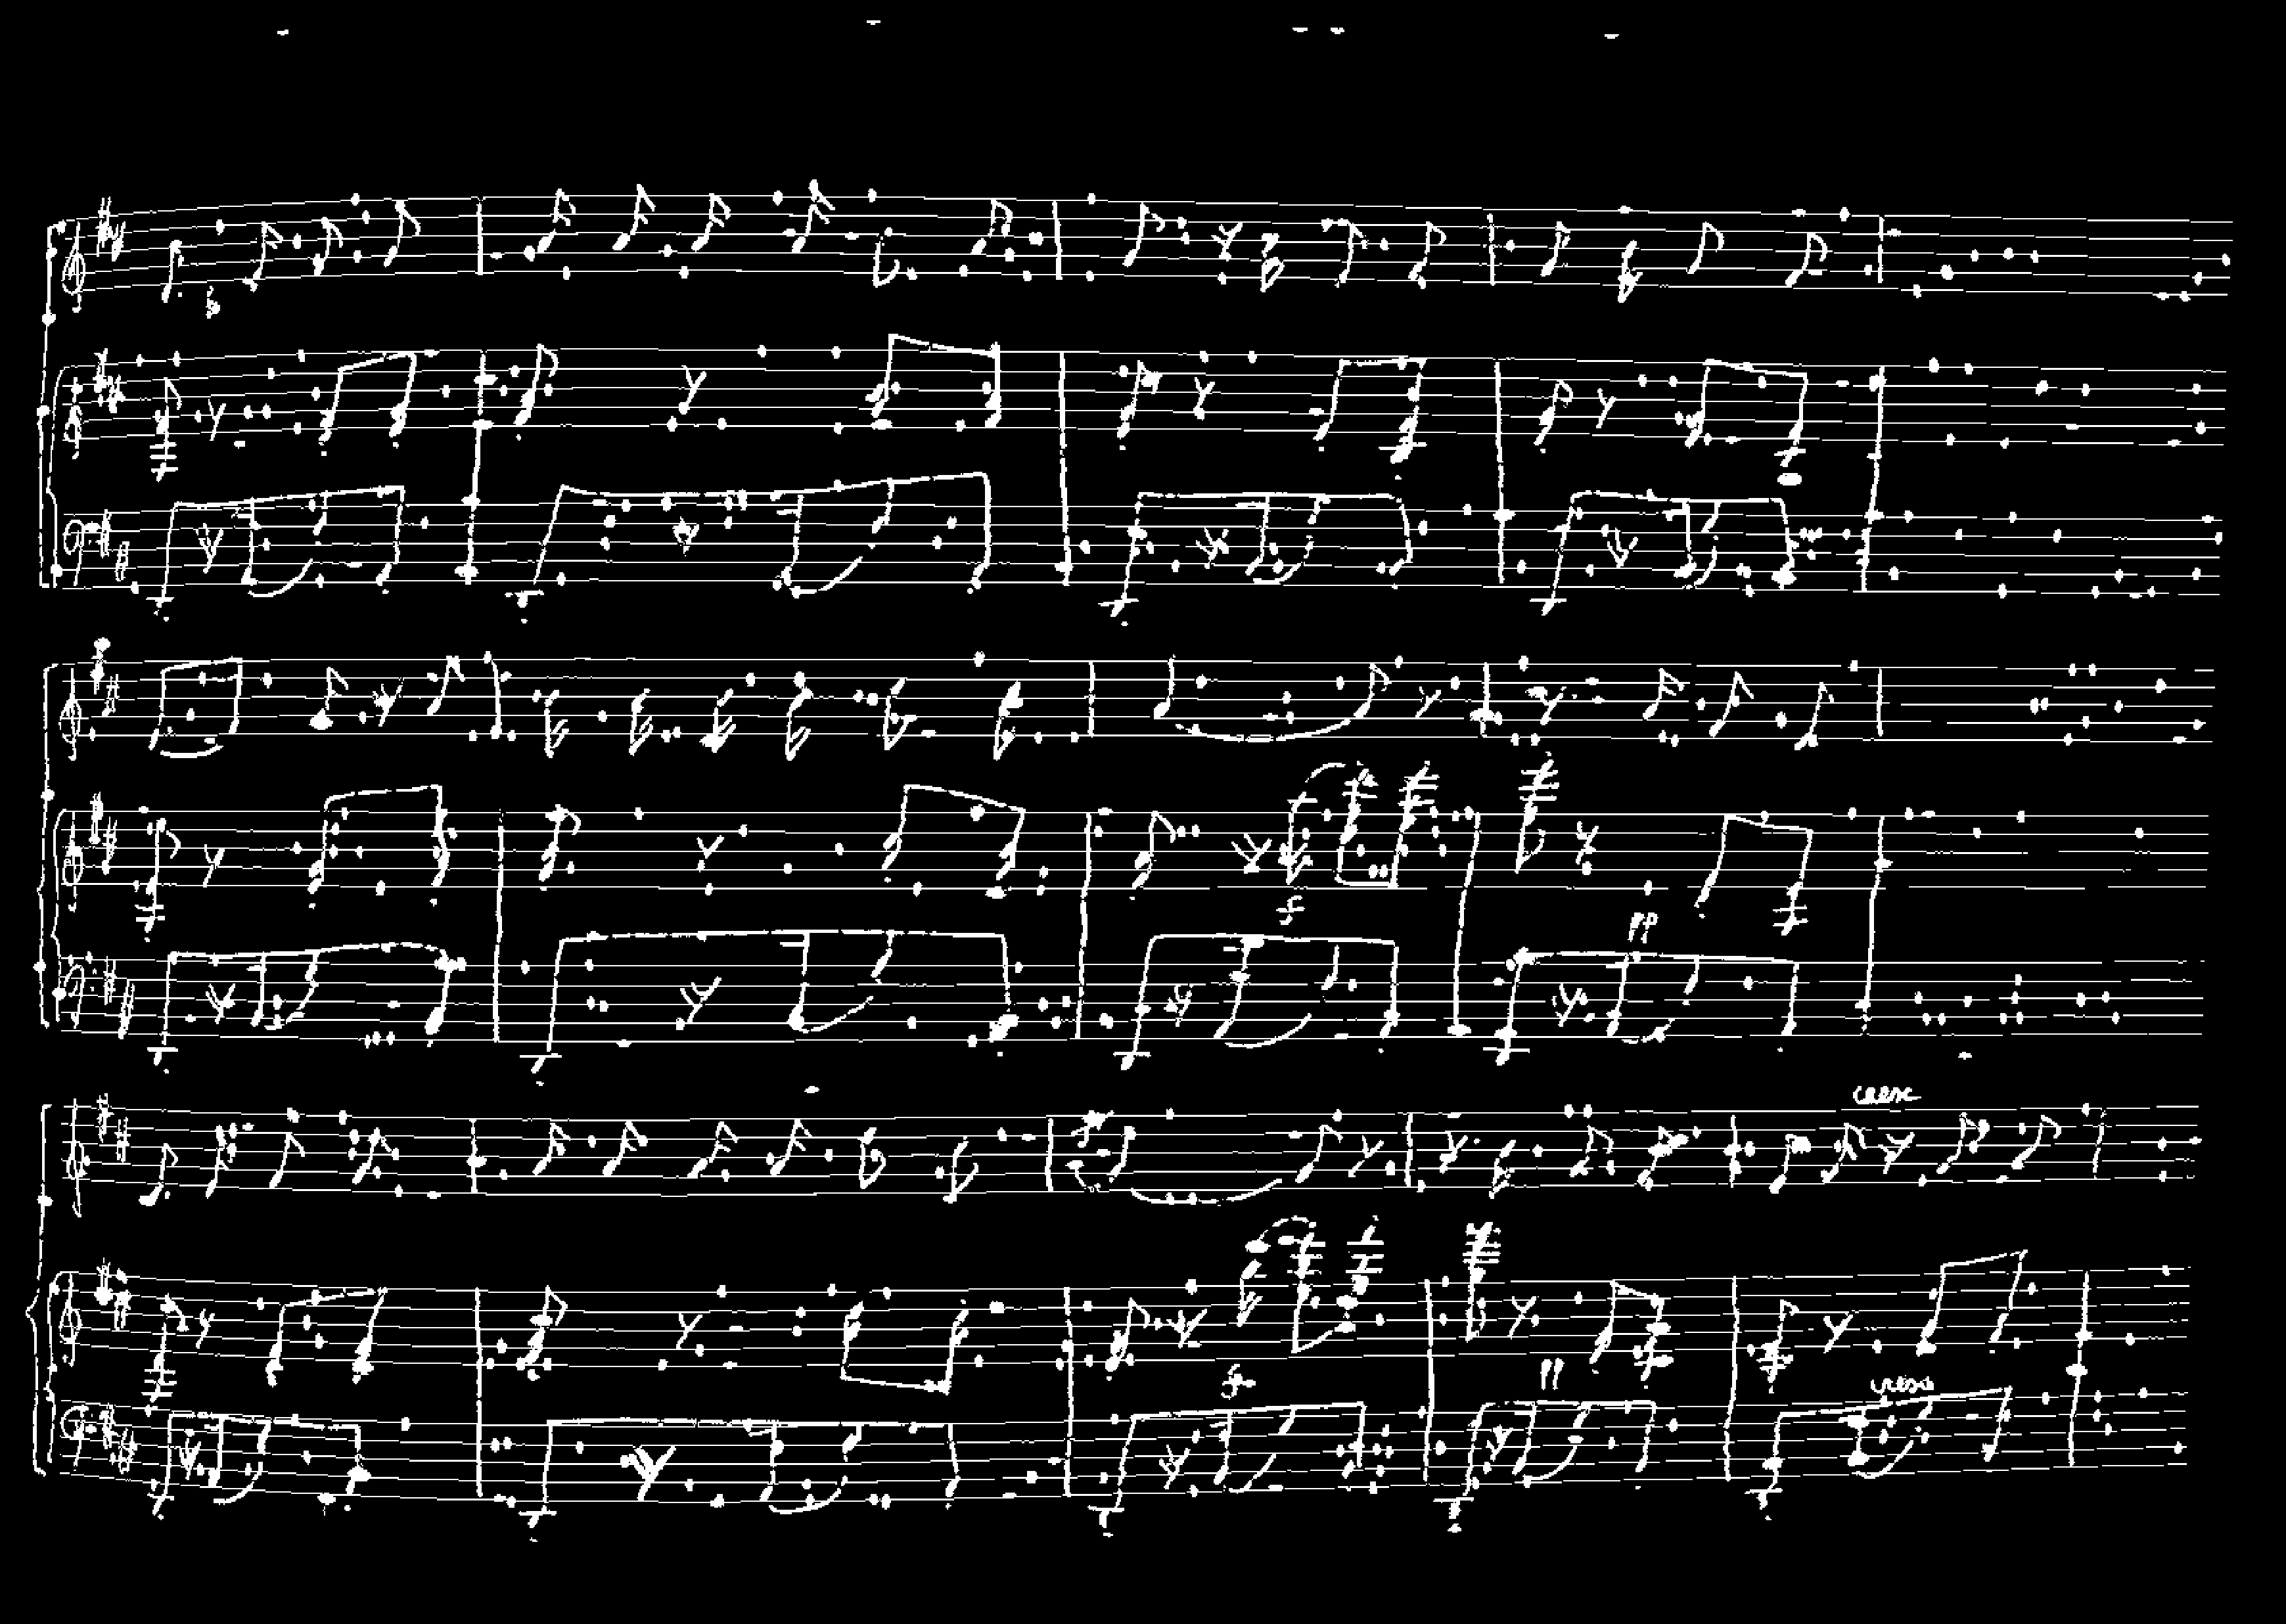 f
pp
cresc
pp
cresc